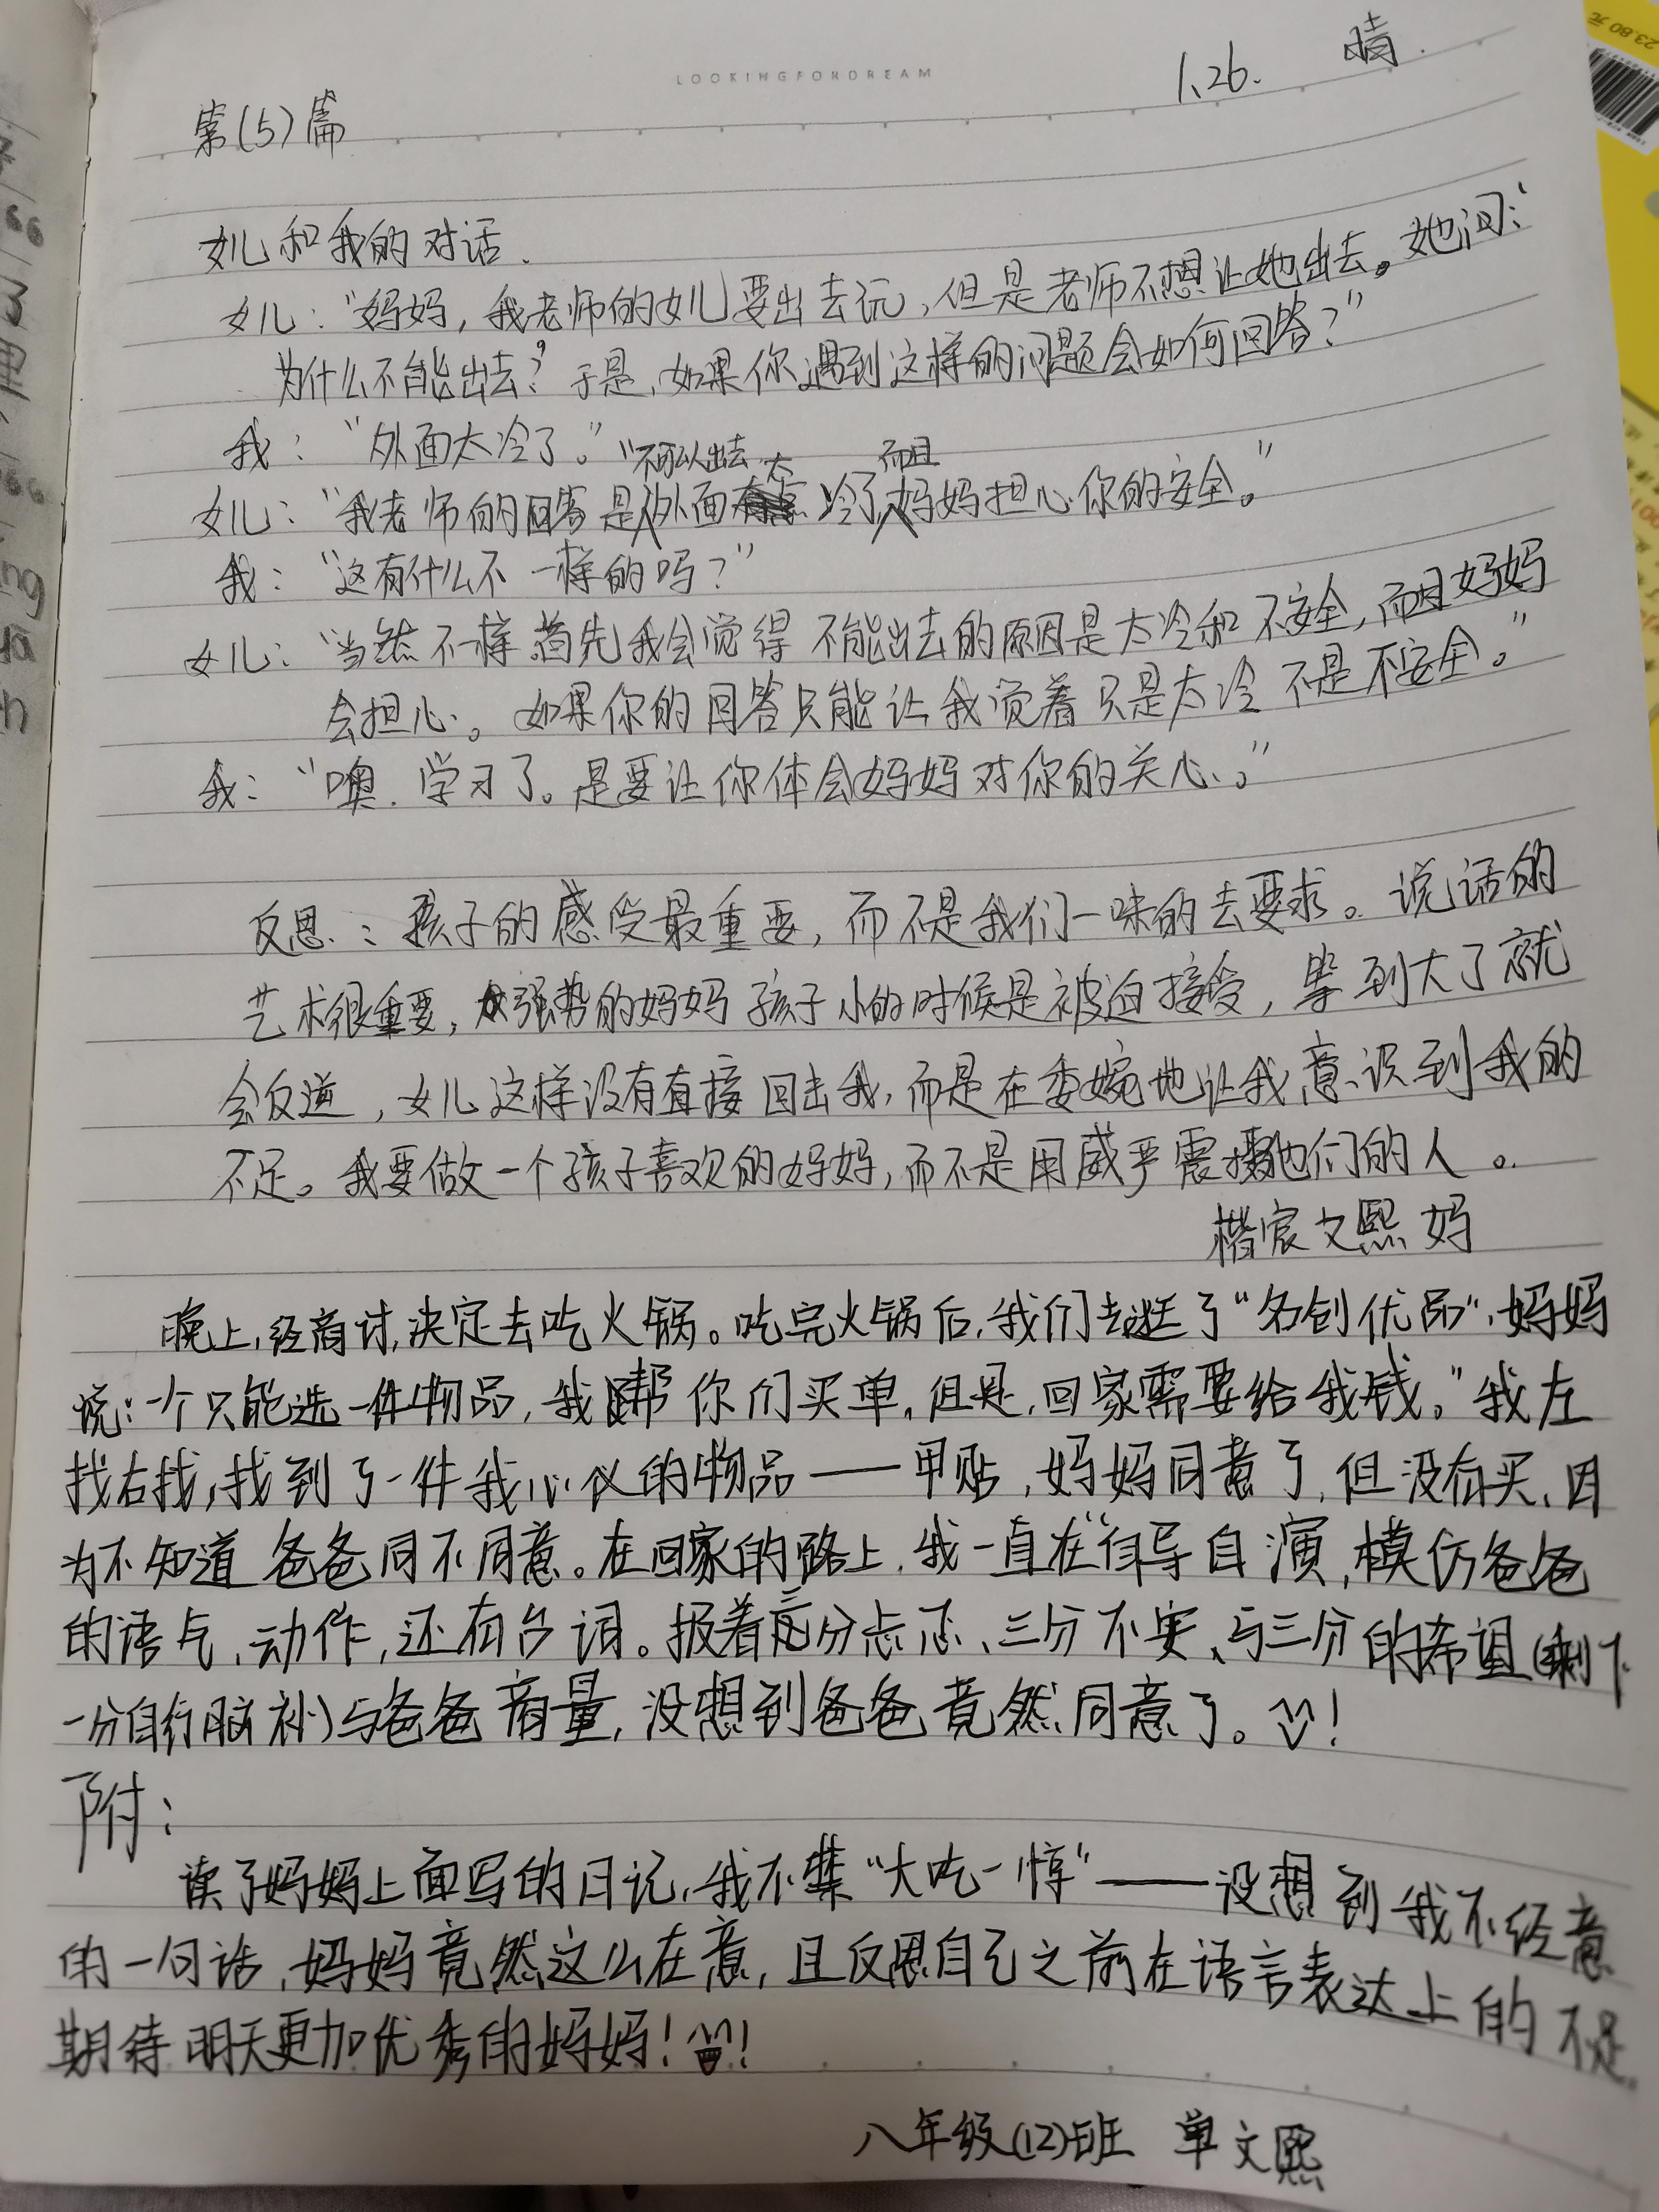 LOOKINGFORDREAM
1.26. 晴.
第(5)篇
女儿和我的对话.
女儿:“妈妈,我老师的女儿要出去玩,但是老师不想让她出去。她问:“
为什么不能出去?”于是,如果你遇到这样的问题会如何回答?”
我:“外面太冷了。”
女儿:“我老师的回答是“不可以出去外面太冷了而且妈妈担心你的安全。”
我:“这有什么不一样的吗?”
女儿:“当然不一样.首先我会觉得 不能出去的原因是太冷和不安全,而且妈妈
会担心。如果你的回答只能让我觉着只是太冷 不是不安全。”
我:“噢.学习了。是要让你体会妈妈对你的关心。”
反思:孩子的感受最重要,而不是我们一味的去要求。说话的
艺术很重要,强势的妈妈孩子小的时候是被迫接受,等到大了就
会反道,女儿这样没有直接回击我,而是在委婉地让我意识到我的
不足。我要做一个孩子喜欢的妈妈,而不是用威严震摄他们的人。
楷宸文熙妈
晚上,经商讨,决定去吃火锅。吃完火锅后,我们去逛了“名创优品”,妈妈
说:一个只能选一件物品,我帮你们买单,但是,回家需要给我钱。”我左
找右找,找到了一件我心仪的物品——甲贴,妈妈同意了,但没有买,因
为不知道爸爸同不同意。在回家的路上,我一直在“自导自演,模仿爸爸
的语气,动作,还有台词。报着三分忐忑、三分不安、与三分的希望(剩下
一分自行脑补)与爸爸商量,没想到爸爸竟然同意了。!
附:
读了妈妈上面写的日记,我不禁“大吃一惊”——没想到我不经意
的一句话,妈妈竟然这么在意,且反思自己之前在语言表达上的不足.
期待明天更加优秀的妈妈!!
八年级(12)班 单文熙
23.80元